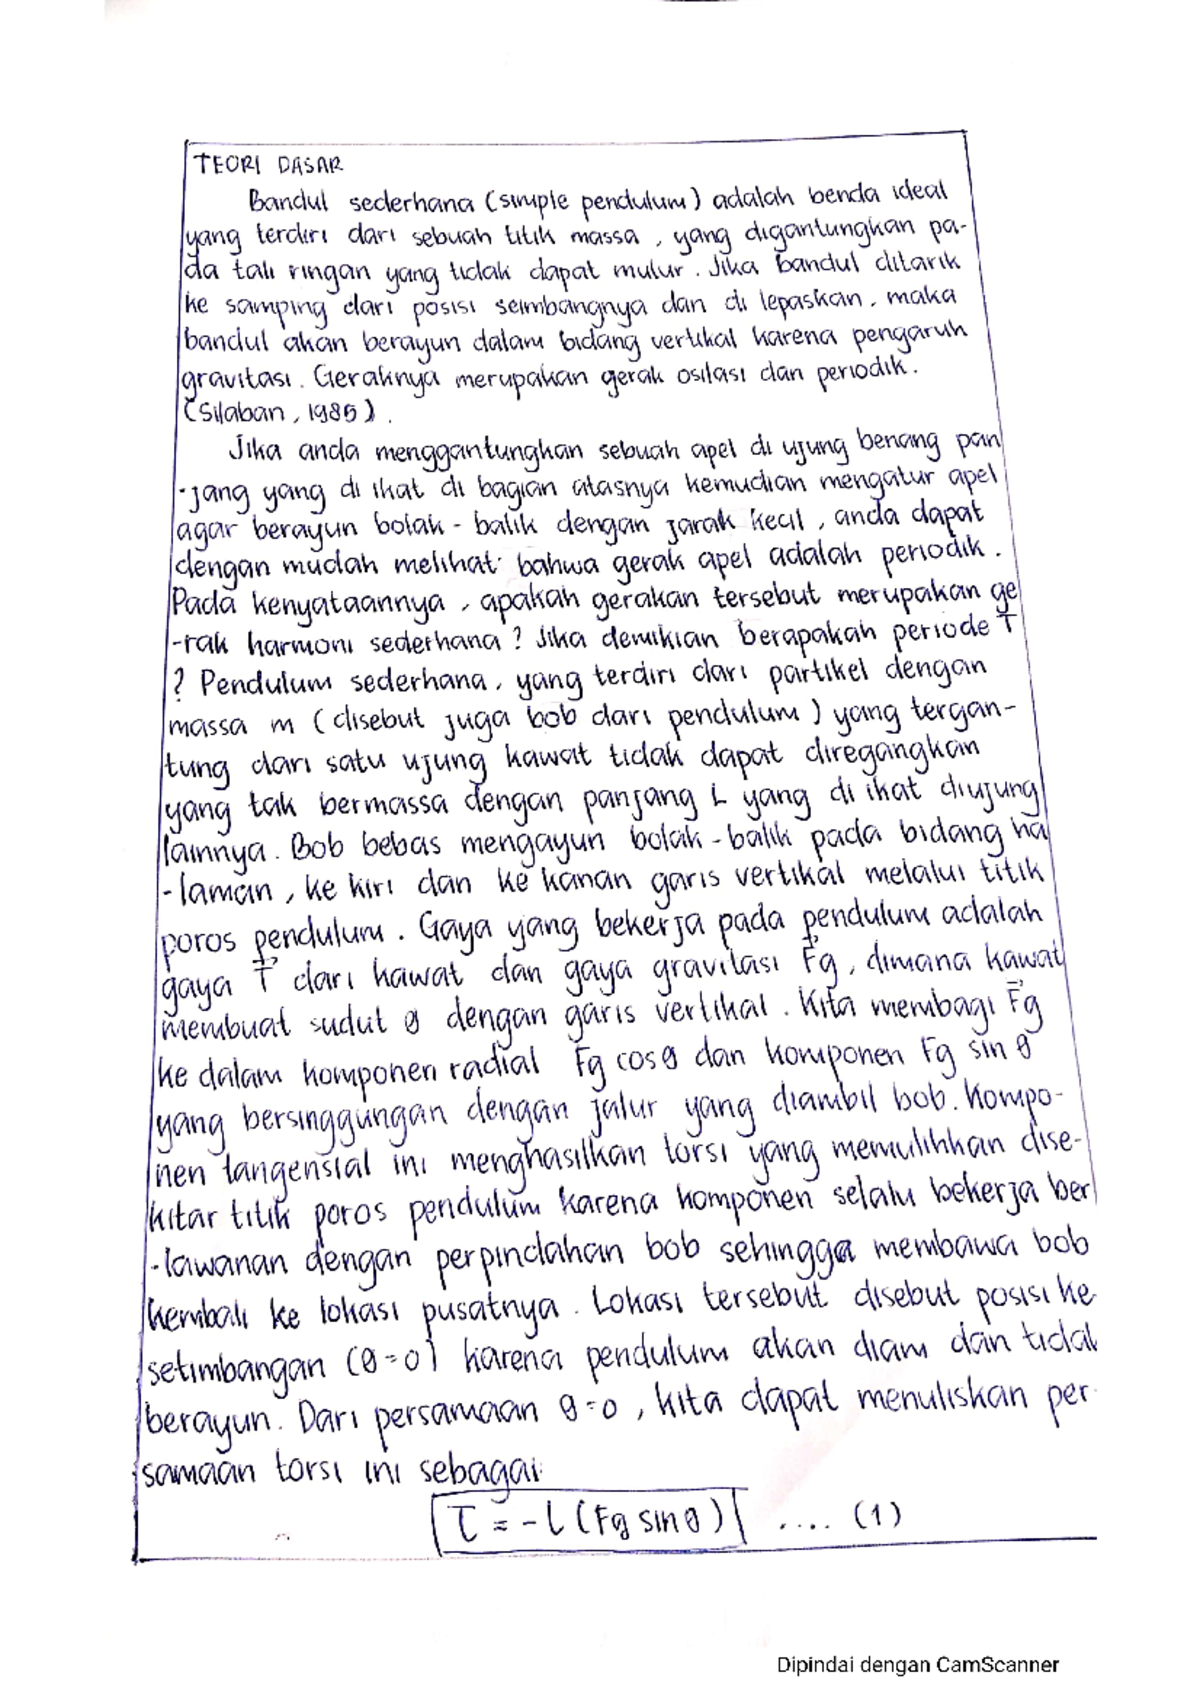 TEORI DASAR
Bandul sederhana (simple pendulum) adalah benda ideal
yang terdiri dari sebuah titik massa, yang digantungkan pa-
da tali ringan yang tidak dapat mulur. Jika bandul ditarik
ke samping dari posisi seimbangnya dan di lepaskan. maka
bandul akan berayun dalam bidang vertikal karena pengaruh
gravitasi. Geraknya merupakan gerak osilasi dan periodik.
(Silaban, 1985).
Jika anda menggantungkan sebuah apel di ujung benang pan
-jang yang di ikat di bagian atasnya kemudian mengatur apel
agar berayun bolak-balik dengan jarak kecil, anda dapat
dengan mudah melihat bahwa gerak apel adalah periodik.
Pada kenyataannya, apakah gerakan tersebut merupakan ge
-rak harmoni sederhana? Jika demikian berapakah periode T
? Pendulum sederhana, yang terdiri dari partikel dengan
massa m (disebut juga bob dari pendulum) yang tergan-
tung dari satu ujung kawat tidak dapat diregangkan
yang tak bermassa dengan panjang L yang di ikat diujung
lainnya. Bob bebas mengayun bolak-balik pada bidang ha
-laman, ke kiri dan ke kanan garis vertikal melalui titik
poros pendulum. Gaya yang bekerja pada pendulum adalah
gaya T⃗ dari kawat dan gaya gravitasi F⃗g, dimana kawat
membuat sudut θ dengan garis vertikal. Kita membagi F⃗g
ke dalam komponen radial Fg cos θ dan komponen Fg sin θ
yang bersinggungan dengan jalur yang diambil bob. Kompo-
nen tangensial ini menghasilkan torsi yang memulihkan dise-
kitar titik poros pendulum karena komponen selalu bekerja ber
-lawanan dengan perpindahan bob sehingga membawa bob
kembali ke lokasi pusatnya. Lokasi tersebut disebut posisi ke
setimbangan (θ=0) karena pendulum akan diam dan tidak
berayun. Dari persamaan θ=0, kita dapat menuliskan per
samaan torsi ini sebagai:
τ = -L (Fg sin θ) .... (1)
Dipindai dengan CamScanner